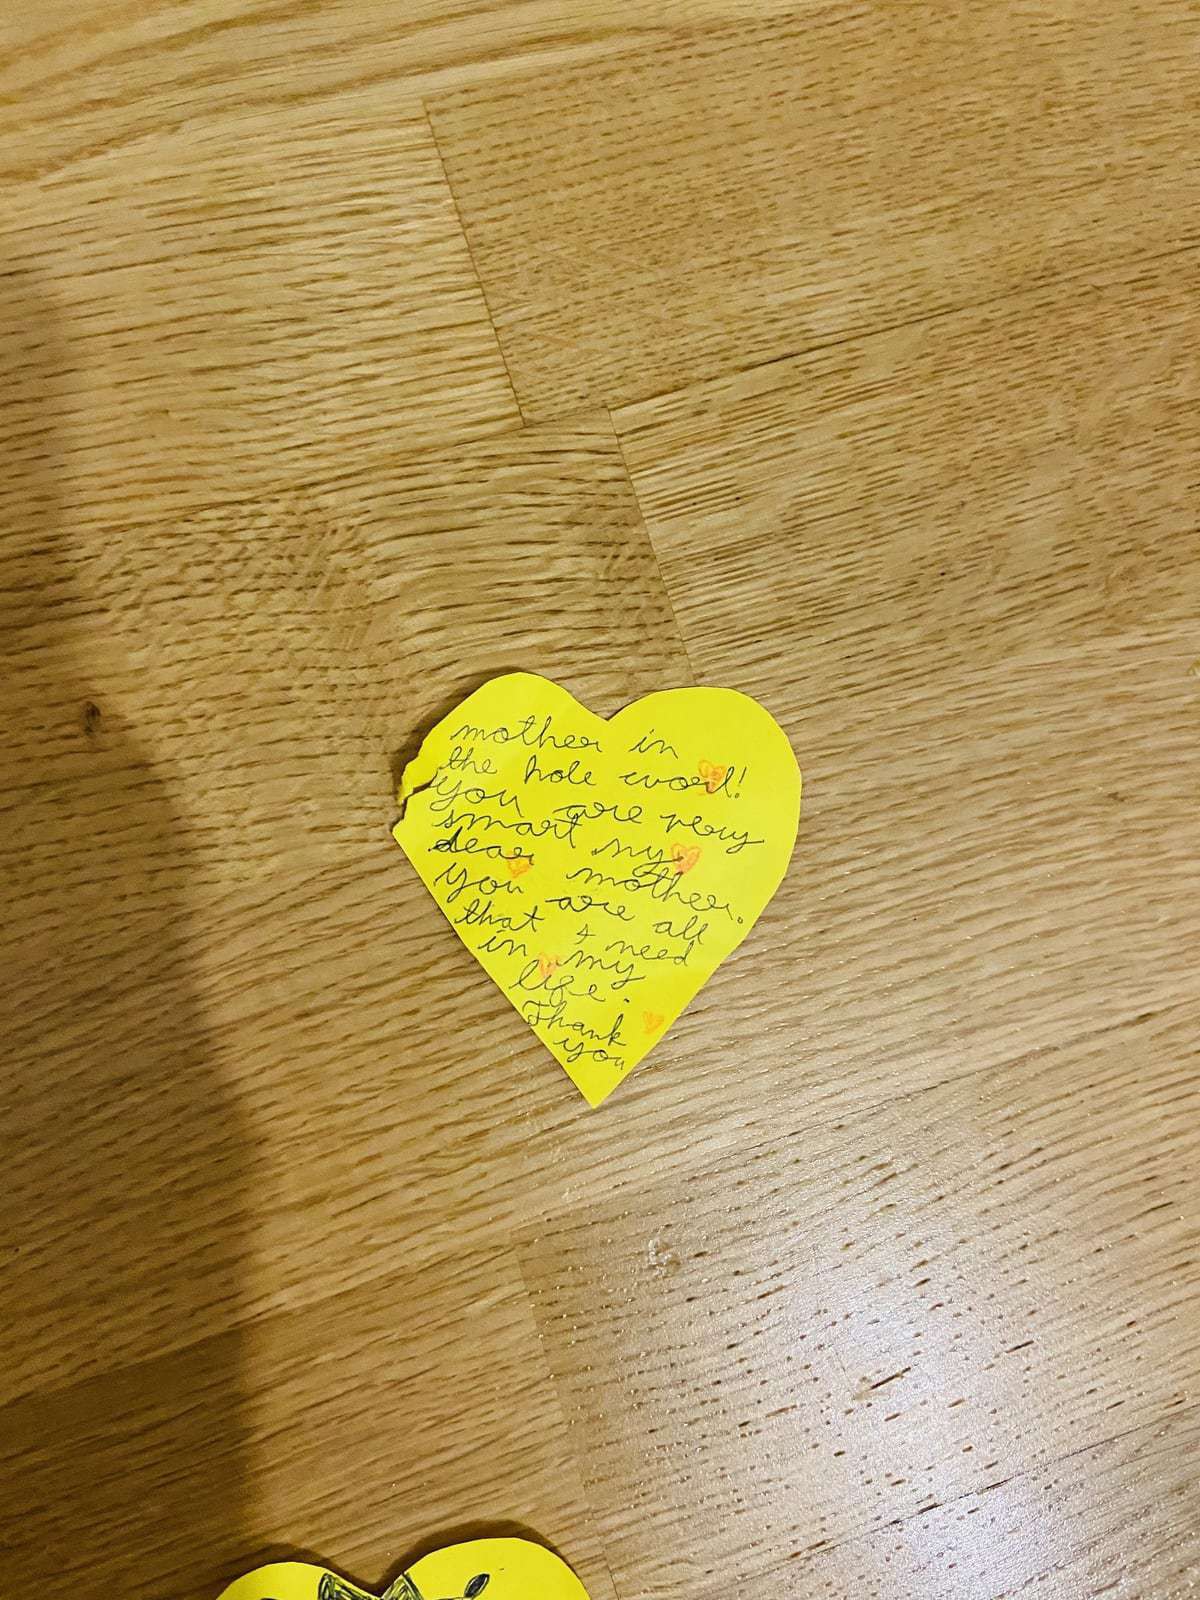 mother in
the hole word!
You are very
smart my
dear mother.
You are all
that I need
in my
life.
Thank
you